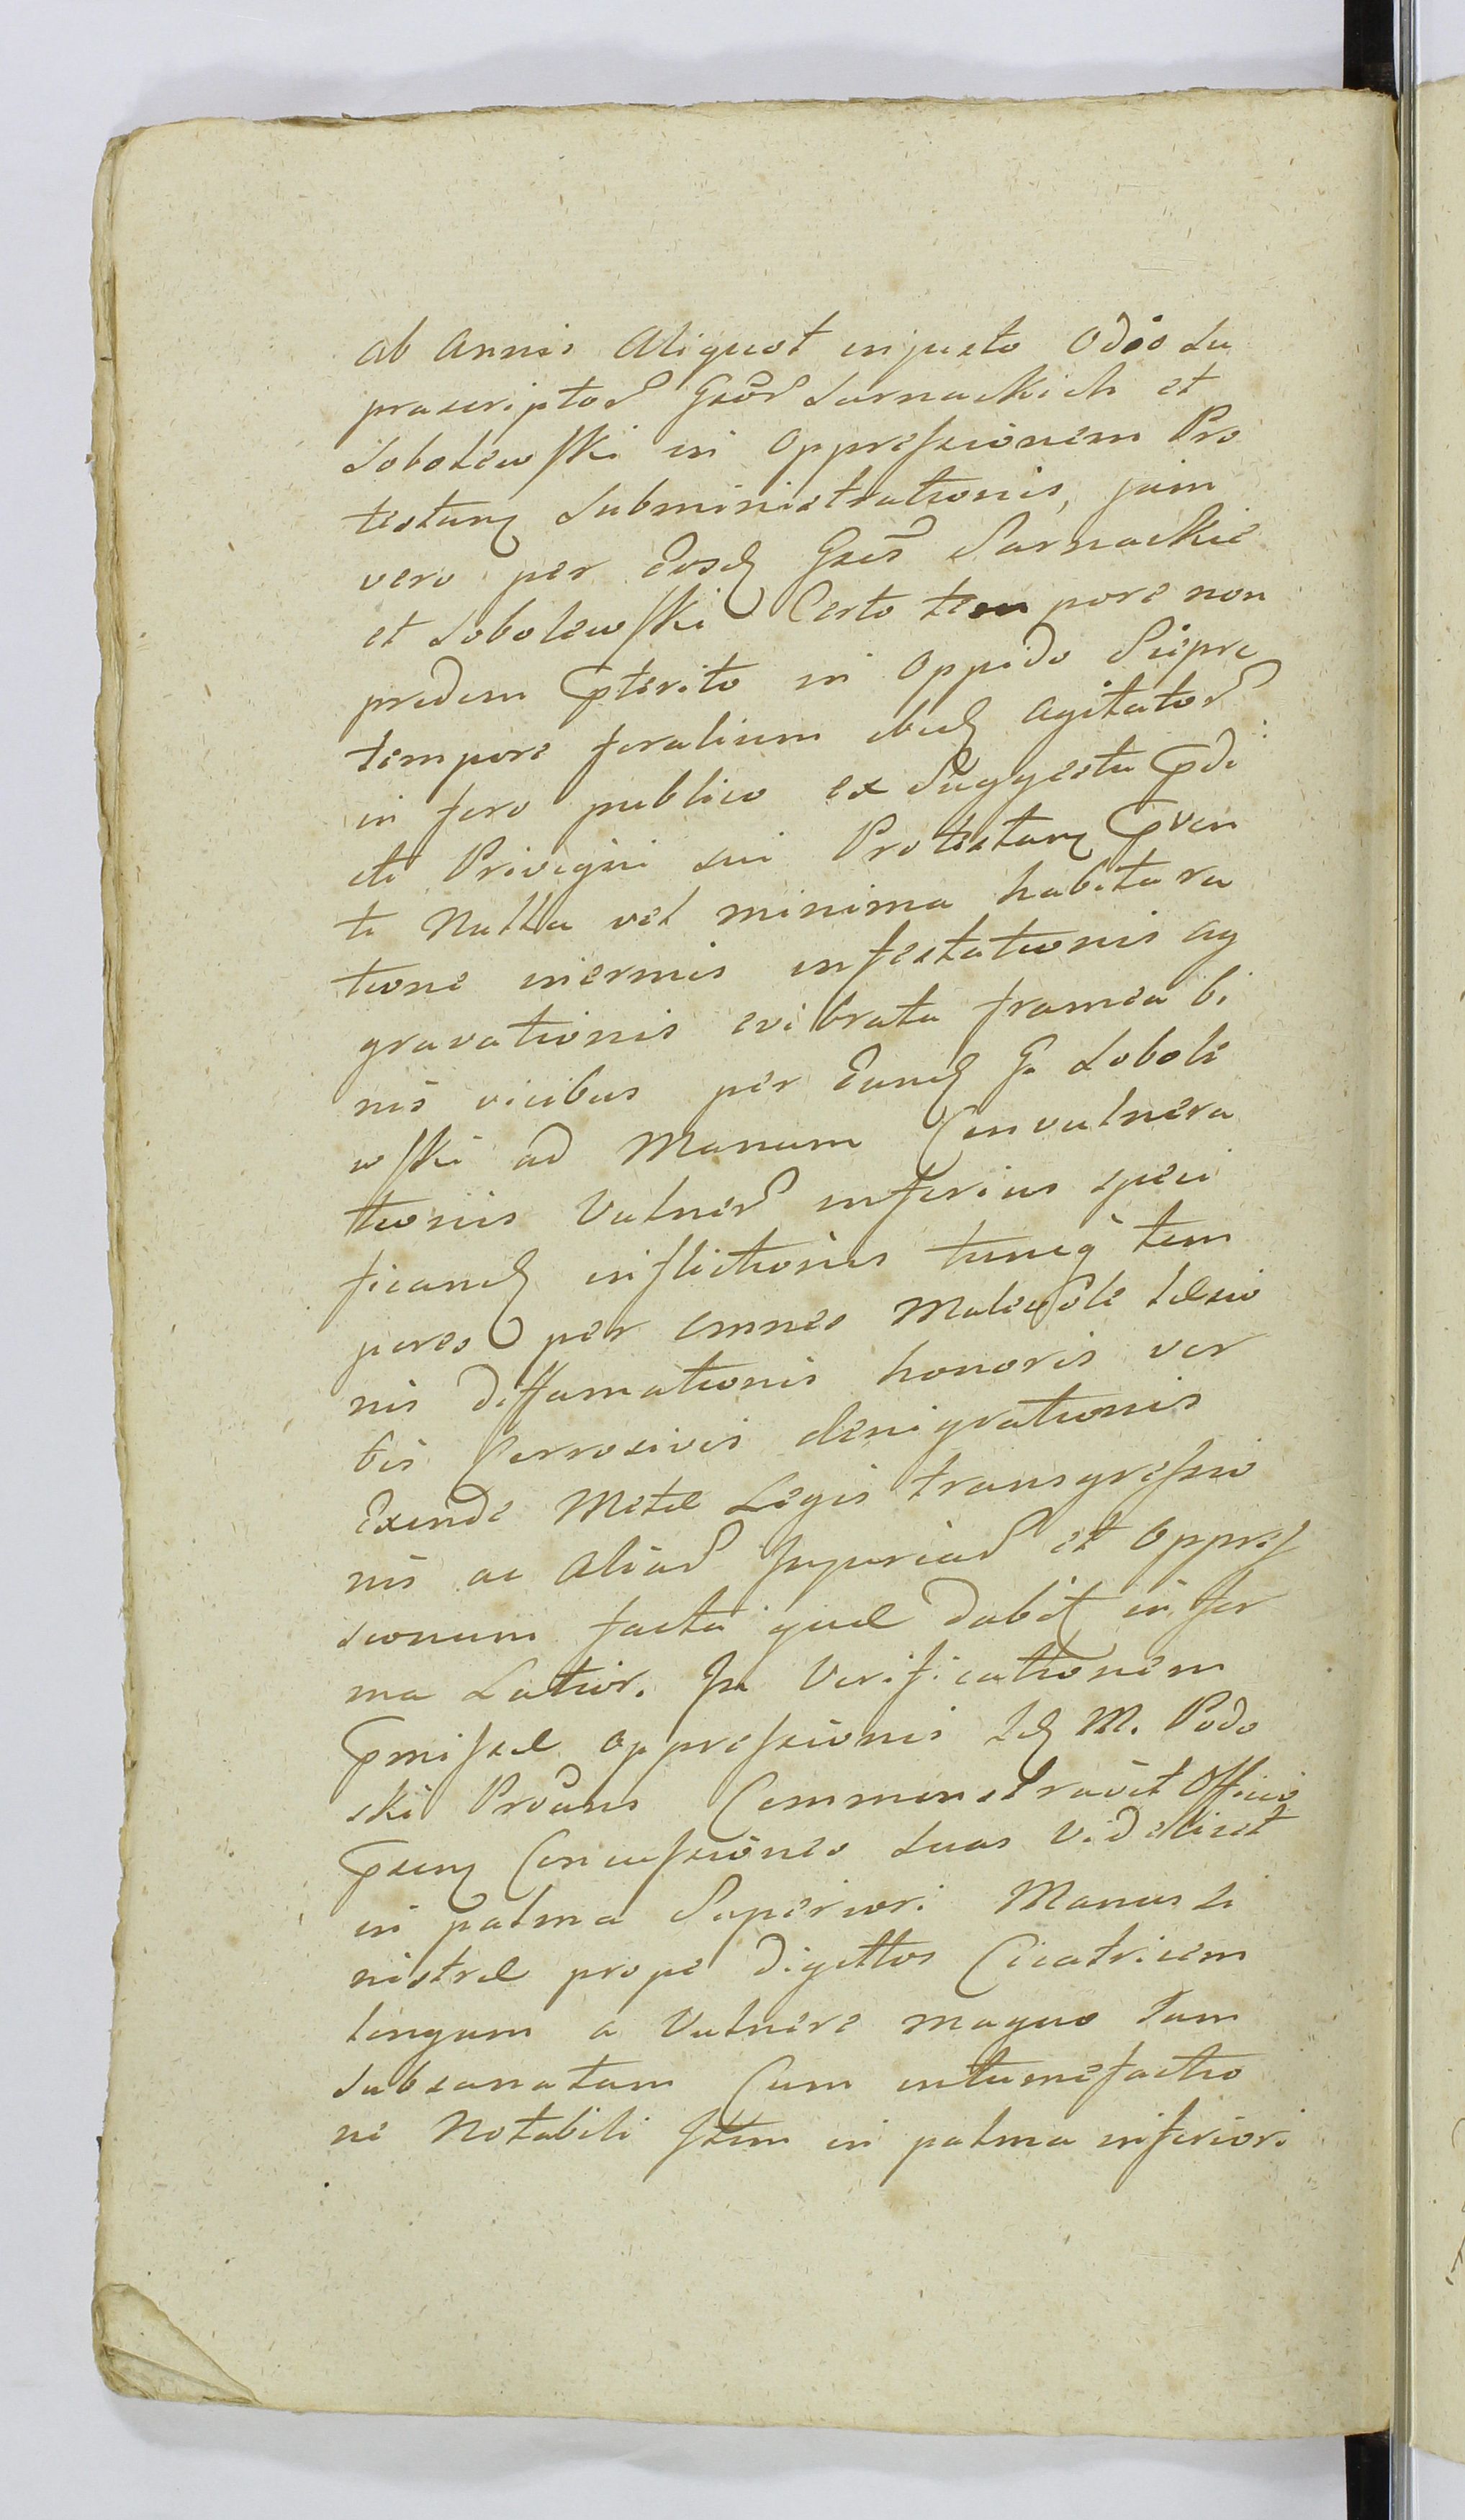 ab Annis Aliquot injusto Odio Su
prascriptor Gsor Sarnackich et
Sobolewski in Oppressionem Pro
testan Subministrationis, jam
vero per Eosd Gsos Sarnackie
et Sobolewski Certo tempore non
pridem pterito in Oppido Siepre
tempore foralium ibid Agitator
in foro publico ex Suggestu pdi
cti Privigni sui Protestan pven
ti Nulla vel minima habita ra
tione inermis infestationis ag
gravationis evibrata framea bi
nis vicibus per Eund G. Sobole
wski ad Manum Convulnera
tionis Vulner inferius speci
ficand inflictionis tuncq tem
poris per omnes Malevole laesio
nis diffamationis honoris ver
bis Corrosivis denigrationis
Exinde Metae Legis transgressio
nis ac Aliar Injuriar et Oppres
sionum facta quae dabit in for
ma Latior. In Verificationem
pmissae oppressionis Id M. Podo
ski Proans Commonstravit Officio
psen Concussiones suas videlicet
in palma Superiori Manus si
nistrae prope digittos Cicatricem
longam a Vulnere magno Jam
subsanatam Cum intumefactio
ne Notabili Item in palma inferiori